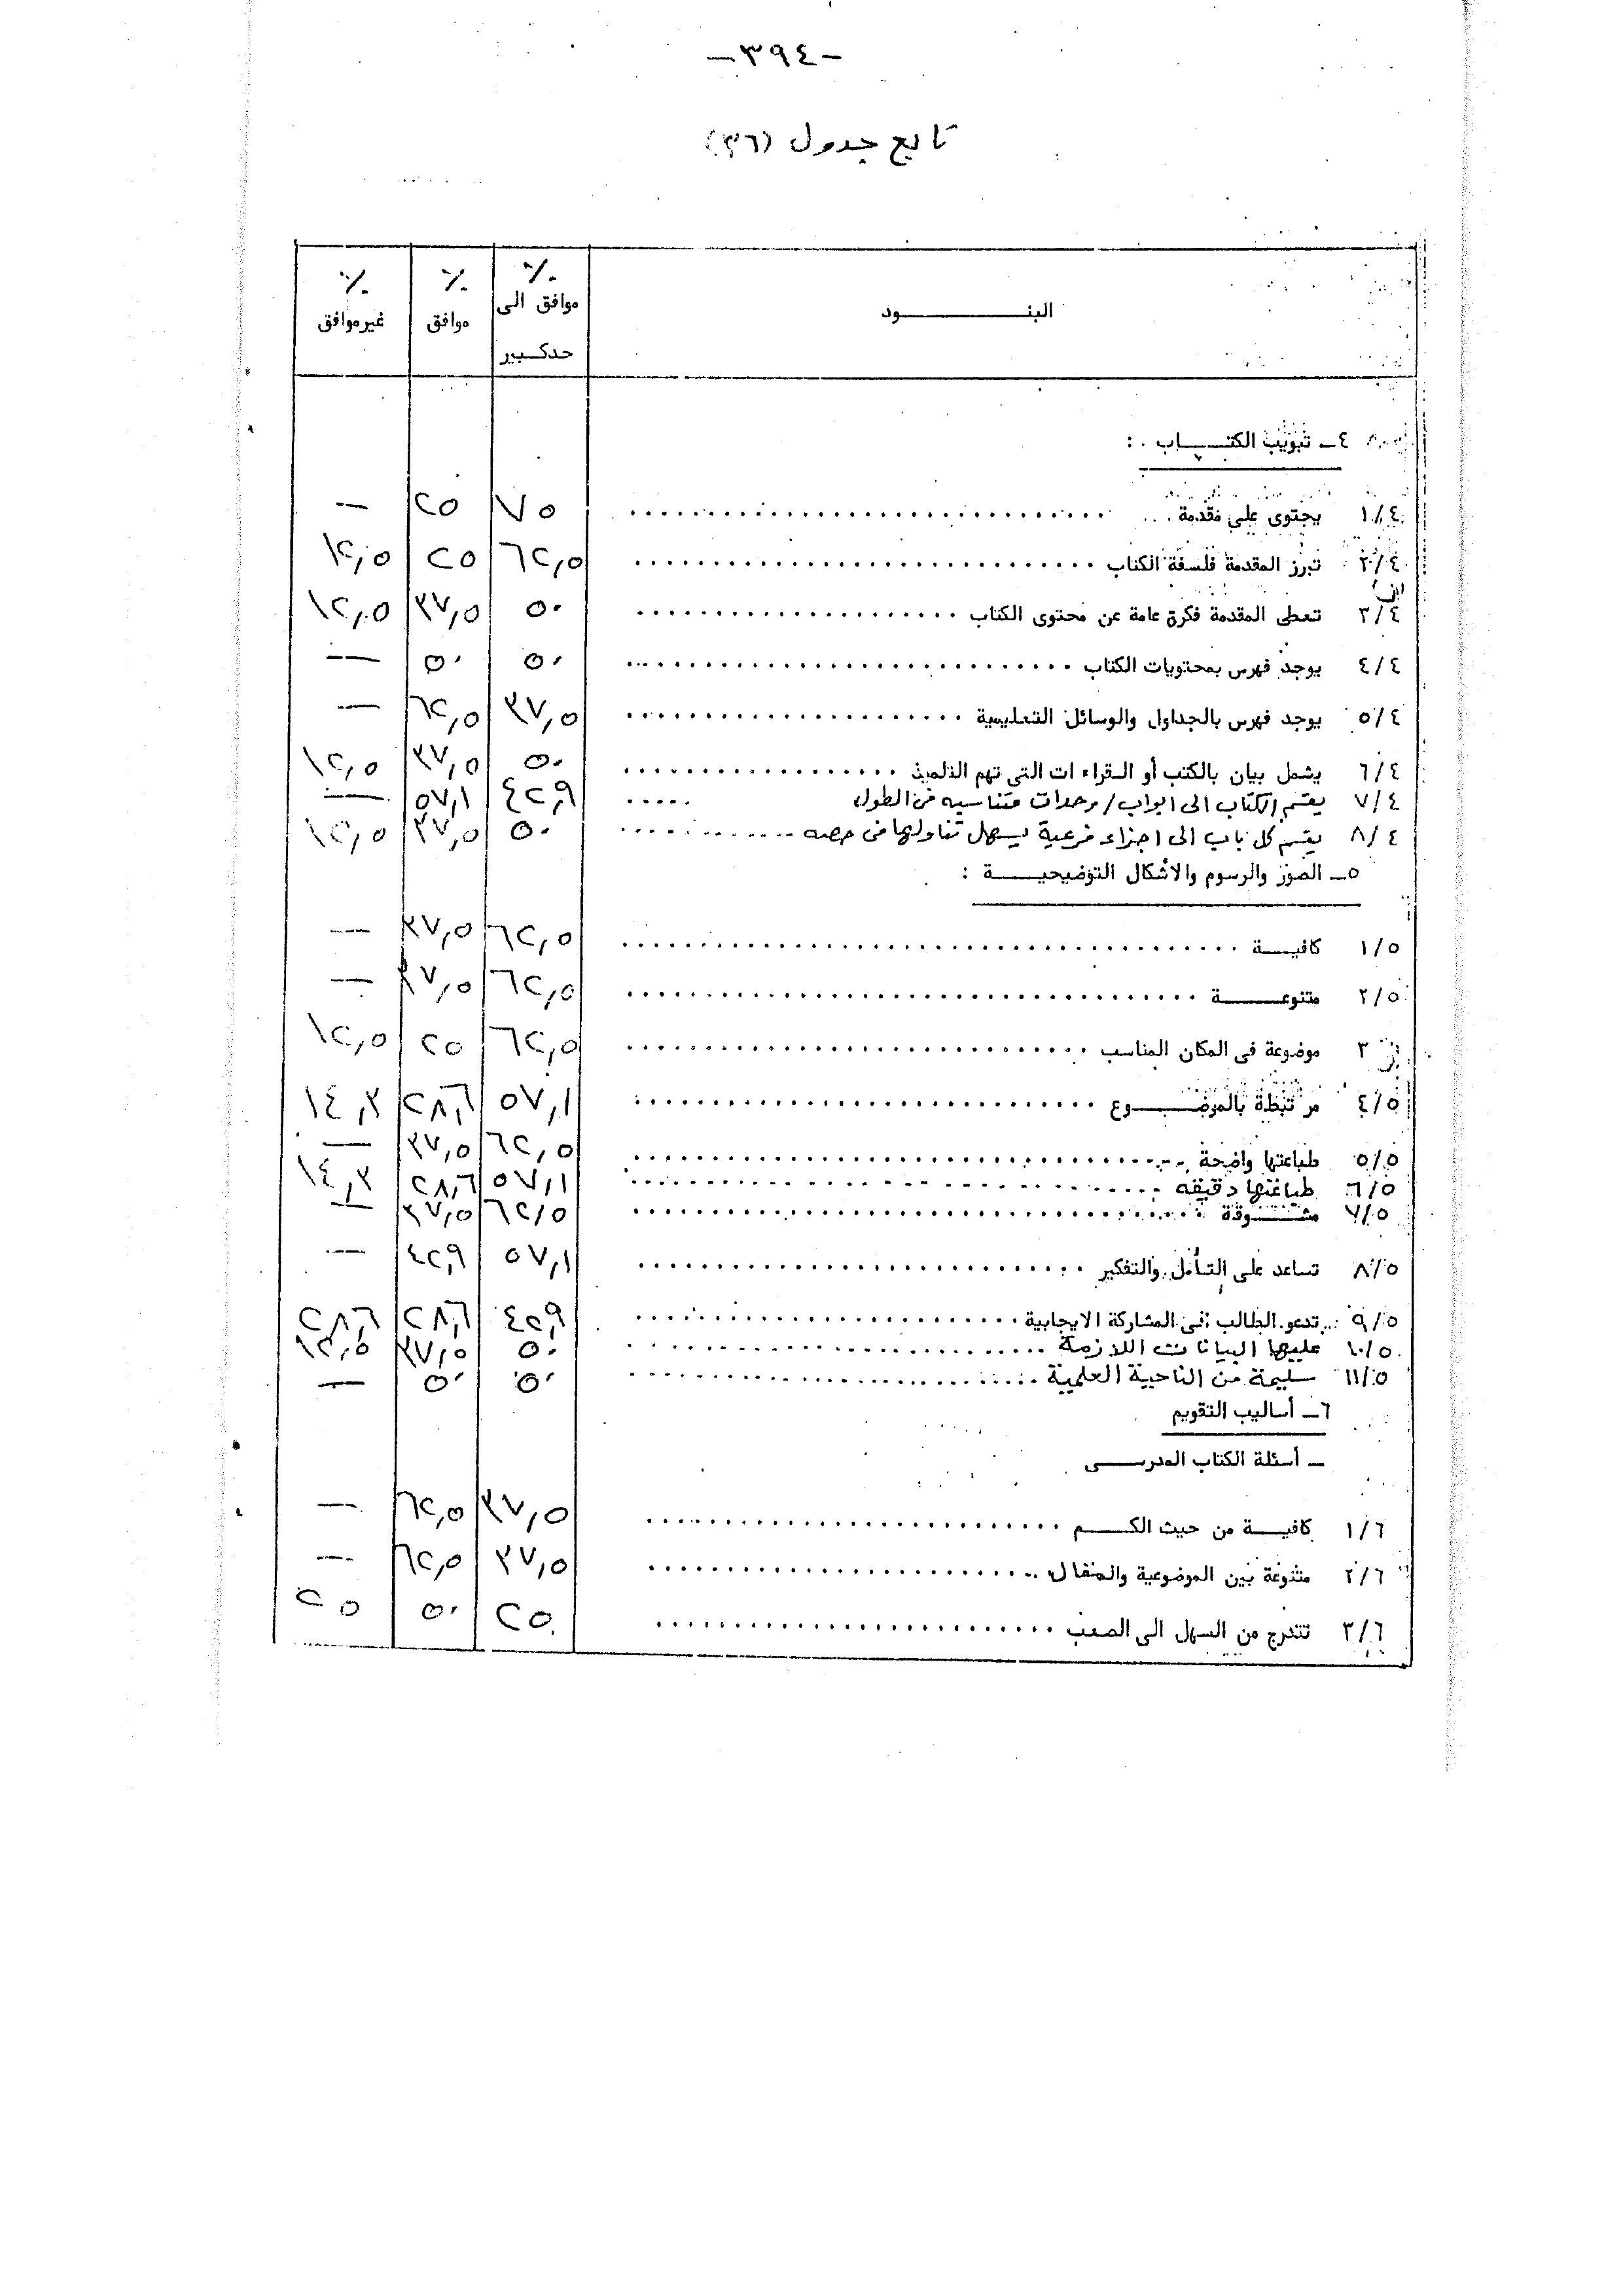 -٣٩٤-
تابع جدول (٣٦)
البنـــــود ٪ موافق الى حد كبير ٪ موافق ٪ غير موافق
٤ـ تبويب الكتـــاب :
١/٤ يحتوى على مقدمة ٧٥ ٢٥ —
٢/٤ تبرز المقدمة فلسفة الكتاب ٦٢,٥ ٢٥ ١٢,٥
٣/٤ تعطى المقدمة فكرة عامة عن محتوى الكتاب ٥٠ ٣٧,٥ ١٢,٥
٤/٤ يوجد فهرس بمحتويات الكتاب ٥٠ ٥٠ —
٥/٤ يوجد فهرس بالجداول والوسائل التعليمية ٣٧,٥ ٦٢,٥ —
٦/٤ يشمل بيان بالكتب أو القراءات التى تهم التلميذ ٥٠ ٣٧,٥ ١٢,٥
٧/٤ يقسم الكتاب الى ابواب/ وحدات متناسبه فى الطول ٤٢,٩ ٥٧,١ —
٨/٤ يقسم كل باب الى اجزاء فرعية يسهل تناولها فى حصه ٥٠ ٣٧,٥ ١٢,٥
٥ـ الصور والرسوم والأشكال التوضيحيـــة :
١/٥ كافيـــة ٦٢,٥ ٣٧,٥ —
٢/٥ متنوعـــة ٦٢,٥ ٣٧,٥ —
٣ موضوعة فى المكان المناسب ٦٢,٥ ٢٥ ١٢,٥
٤/٥ مرتبطة بالموضـــوع ٥٧,١ ٢٨,٦ ١٤,٣
٥/٥ طباعتها واضحة ٦٢,٥ ٣٧,٥ —
٦/٥ طباعتها دقيقه ٥٧,١ ٢٨,٦ ١٤,٣
٧/٥ مشـــوقة ٦٢,٥ ٣٧,٥ —
٨/٥ تساعد على التأمل والتفكير ٥٧,١ ٤٢,٩ —
٩/٥ تدعو الطالب الى المشاركة الايجابية ٤٢,٩ ٢٨,٦ ٢٨,٦
١٠/٥ عليها البيانات اللازمة ٥٠ ٣٧,٥ ١٢,٥
١١/٥ سليمة من الناحية العلمية ٥٠ ٥٠ —
٦ـ أساليب التقويم
ـ أسئلة الكتاب المدرســـى
١/٦ كافيـــة من حيث الكـــم ٣٧,٥ ٦٢,٥ —
٢/٦ متنوعة بين الموضوعية والمقال ٣٧,٥ ٦٢,٥ —
٣/٦ تتدرج من السهل الى الصعب ٢٥ ٥٠ ٢٥